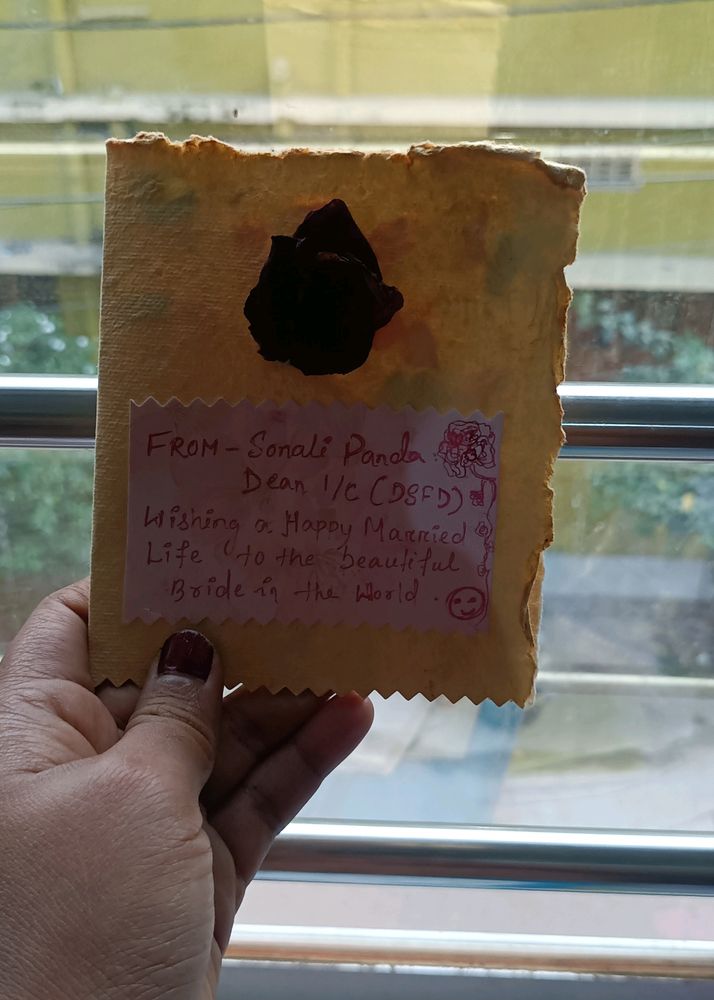 FROM - Sonali Panda
Dean I/C (DSFD)
Wishing a Happy Married
Life to the beautiful
Bride in the World.